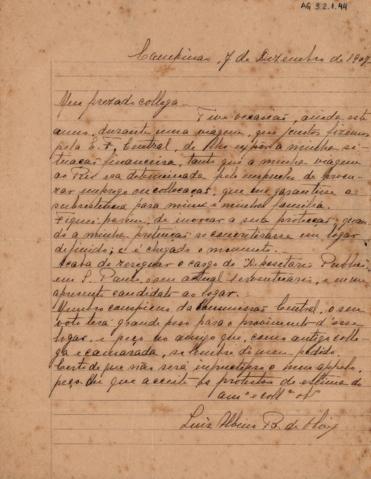 AG 3.2.1.44
Campinas, 7 de Dezembro de 190
Meu prezado collega.
Tive occasião, ainda este
anno, durante uma viagem, que juntos fizemos
pela E. F. Central, de lhe expôr a minha si-
tuação financeira, tanto que a minha viagem
ao Rio era determinada pelo de procu-
rar emprego ou collocação, que me garantisse a
subsistencia para mim e minha familia.
Fiquei, porem, de invocar a sua protecção, quan-
do a minha pretenção se concretisasse em logar
definido; e é chegado o momento.
Acaba de vagar o cargo de Depositario Publico
em S. Paulo, sem actual, e me
apresento candidato ao logar.
Membro da Commissão Central, o seu
voto terá grande peso para o provimento d'esse
logar, e peço ao amigo que, como antigo colle-
ga e camarada, se lembre do meu pedido.
Certo de que não será o meu appello,
peço-lhe que acceite os protestos de estima do
am.º e coll.ª
Luiz Albino B. de